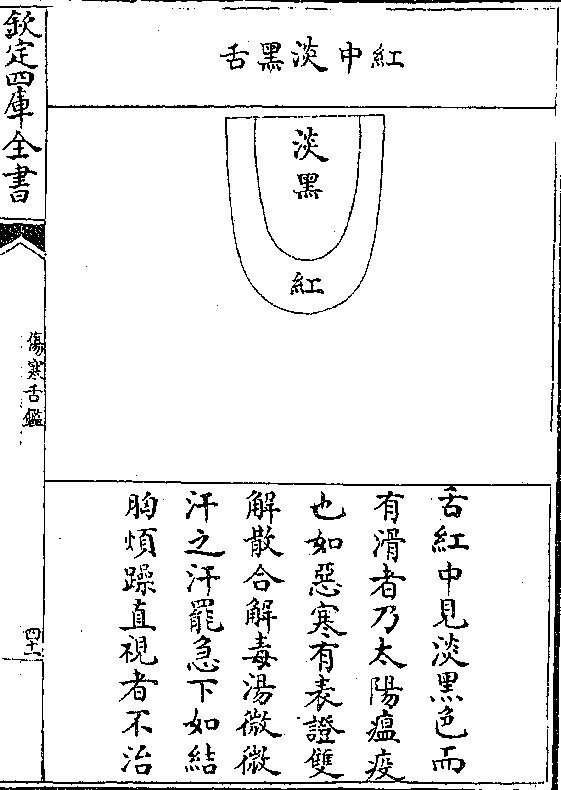 紅中淡黑舌
淡黑
紅
舌紅中見淡黑色而
有滑者乃太陽瘟疫
也如惡寒有表證雙
解散合解毒湯微微
汗之汗罷急下如結
胸煩躁直視者不治
欽定四庫全書
傷寒舌鑑
四十一